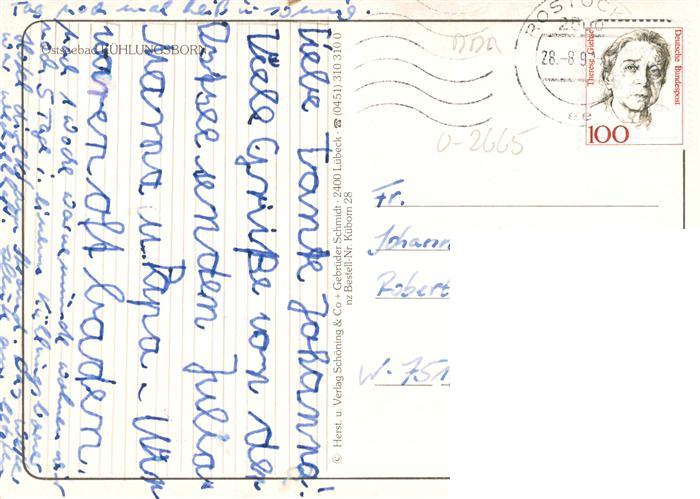 Tag noch mal heiß u. sonnig.
Ostseebad KÜHLUNGSBORN
Liebe Tante Johanna!
Viele Grüße von der
Ostsee senden Julia
Mama u. Papa. Wir
waren oft baden.
Nach 1 Woche Warnemünde wohnen wir
noch 5 Tage i. einem Kühlungsborner
© Herst. u. Verlag Schöning & Co + Gebrüder Schmidt · 2400 Lübeck · ☎ (0451) 310 310 0
nz Bestell-Nr. Kübom 28
ROSTOCK
28.-8.9
Deutsche Bundespost
Therese Giehse
100
DDR
0-2665
Fr.
Johann
Robert
W-751